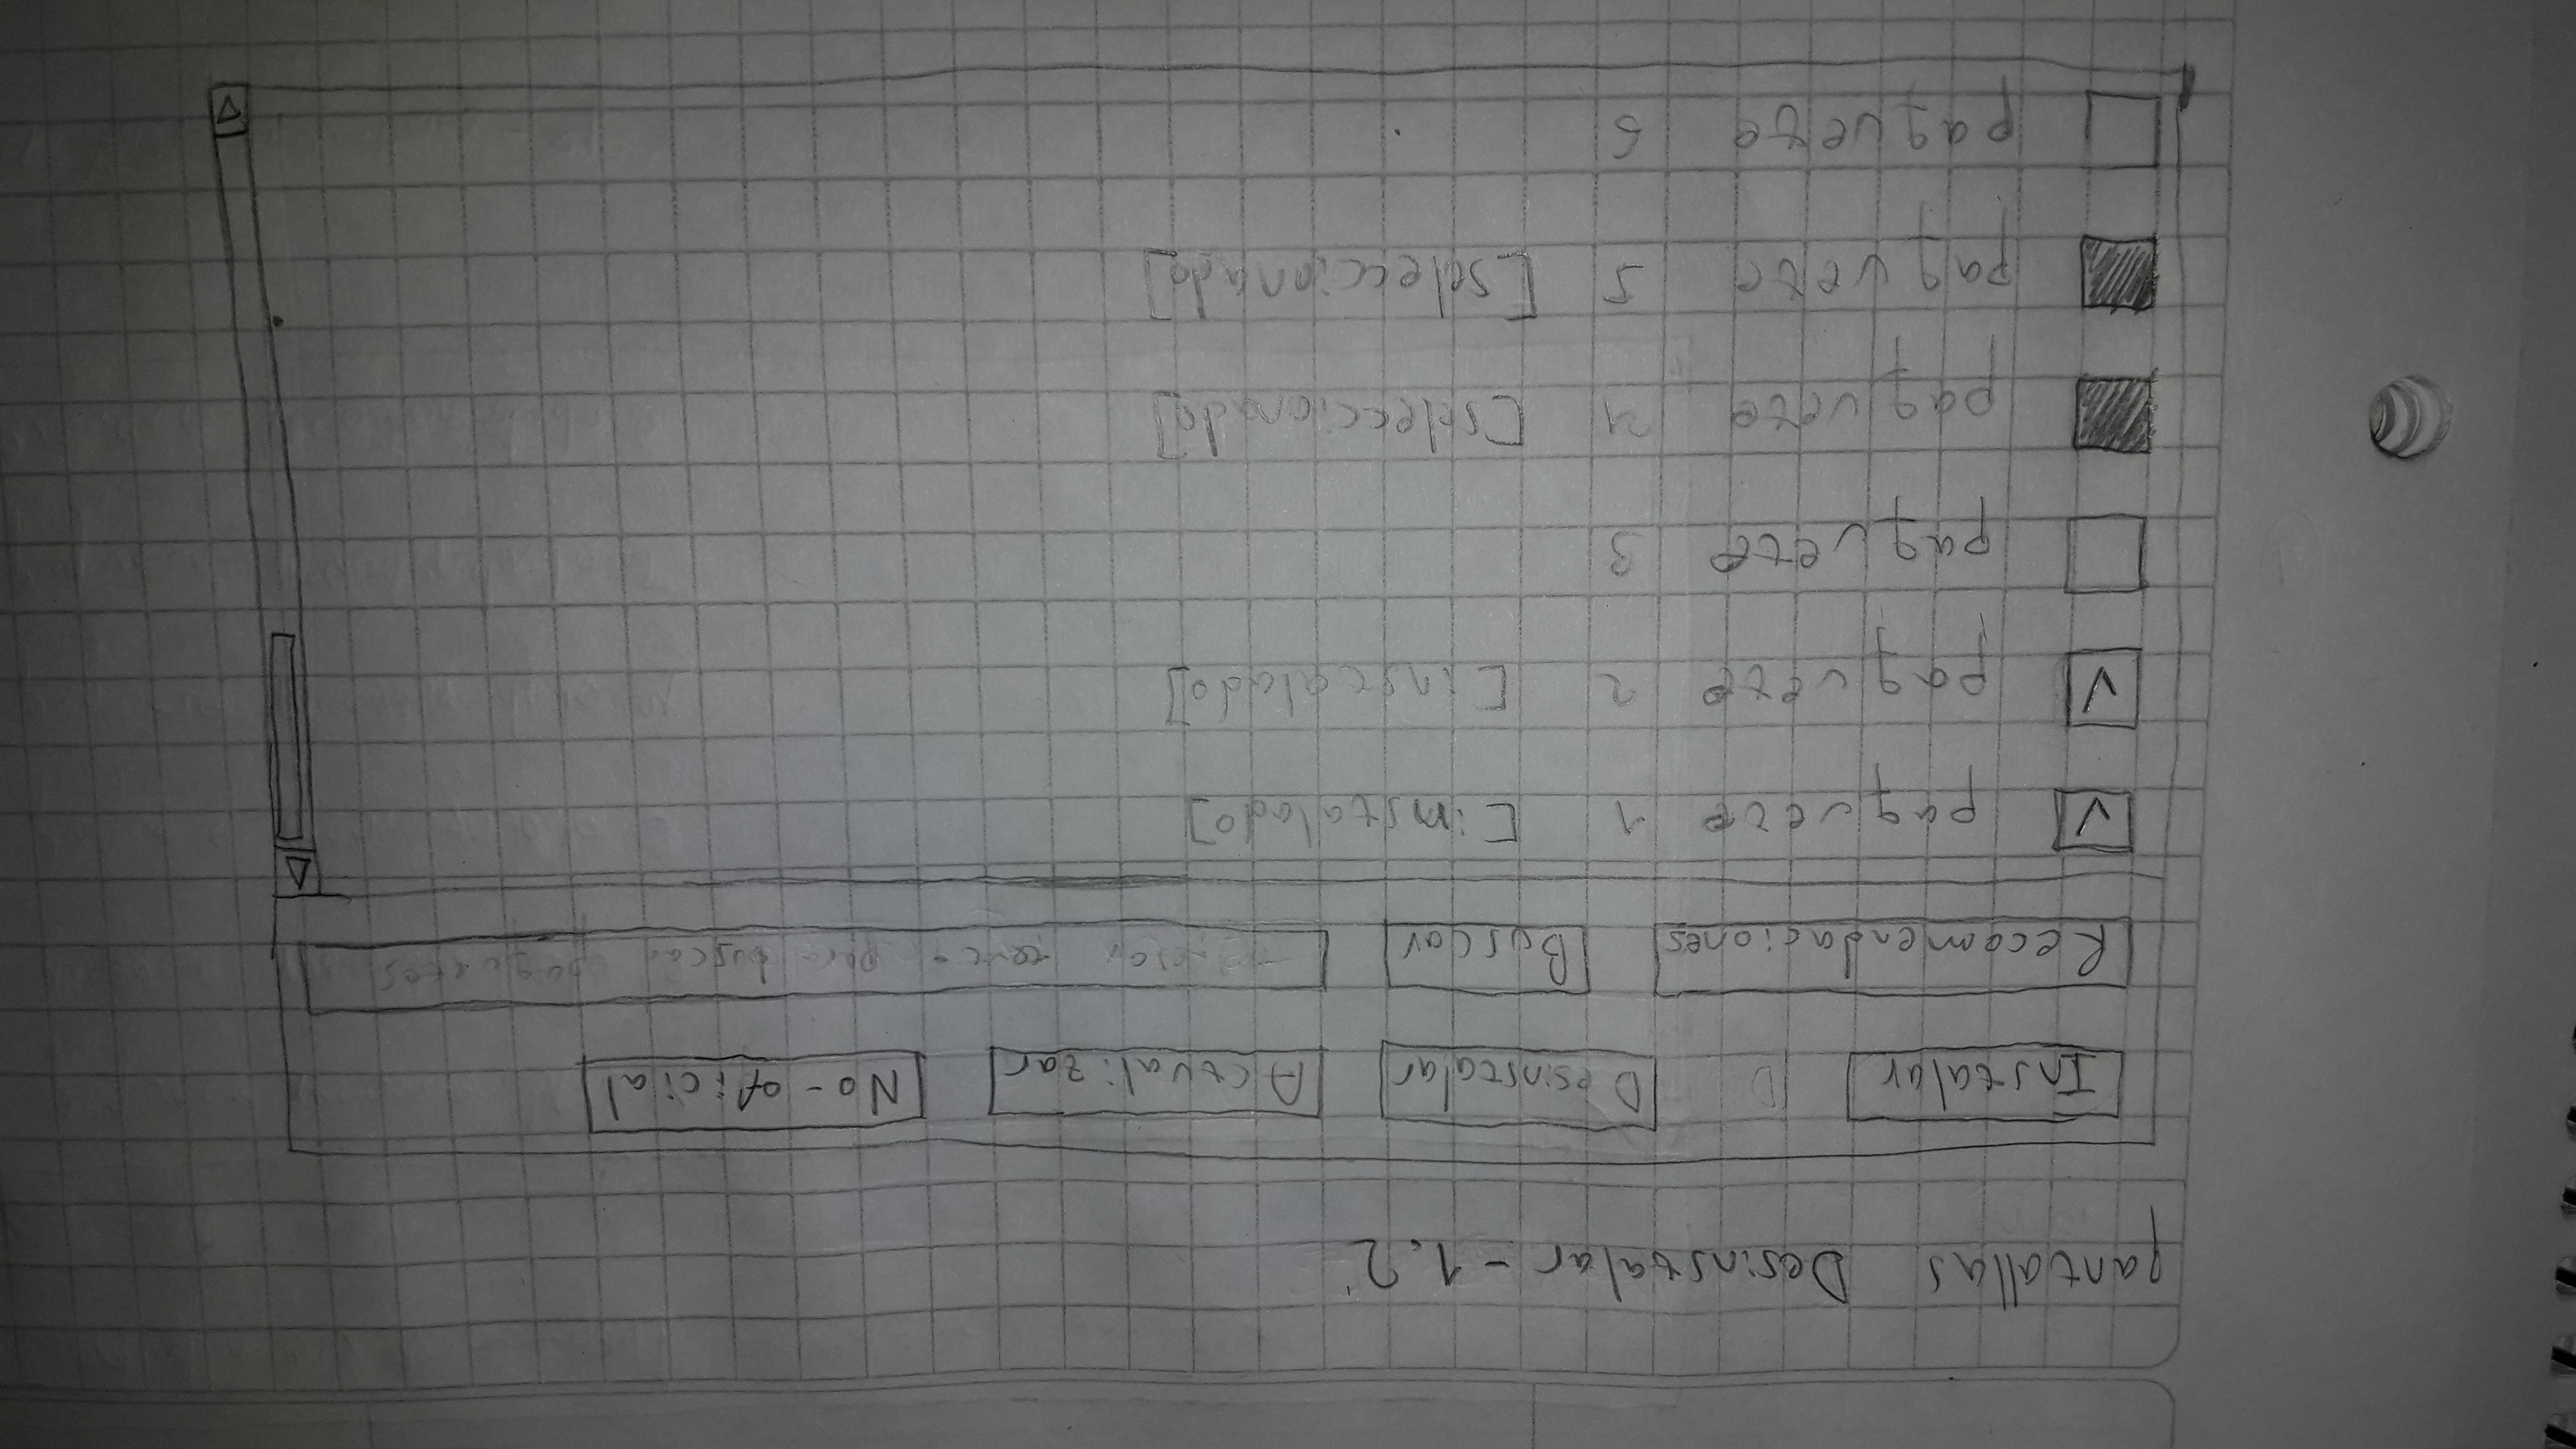 pantallas Desinstalar - 1.2
Instalar D Desinstalar Actualizar No-oficial
Recomendaciones Buscar para buscar paquetes
paquete 1 [instalado]
paquete 2 [instalado]
paquete 3
paquete 4 [seleccionado]
paquete 5 [seleccionado]
paquete 6